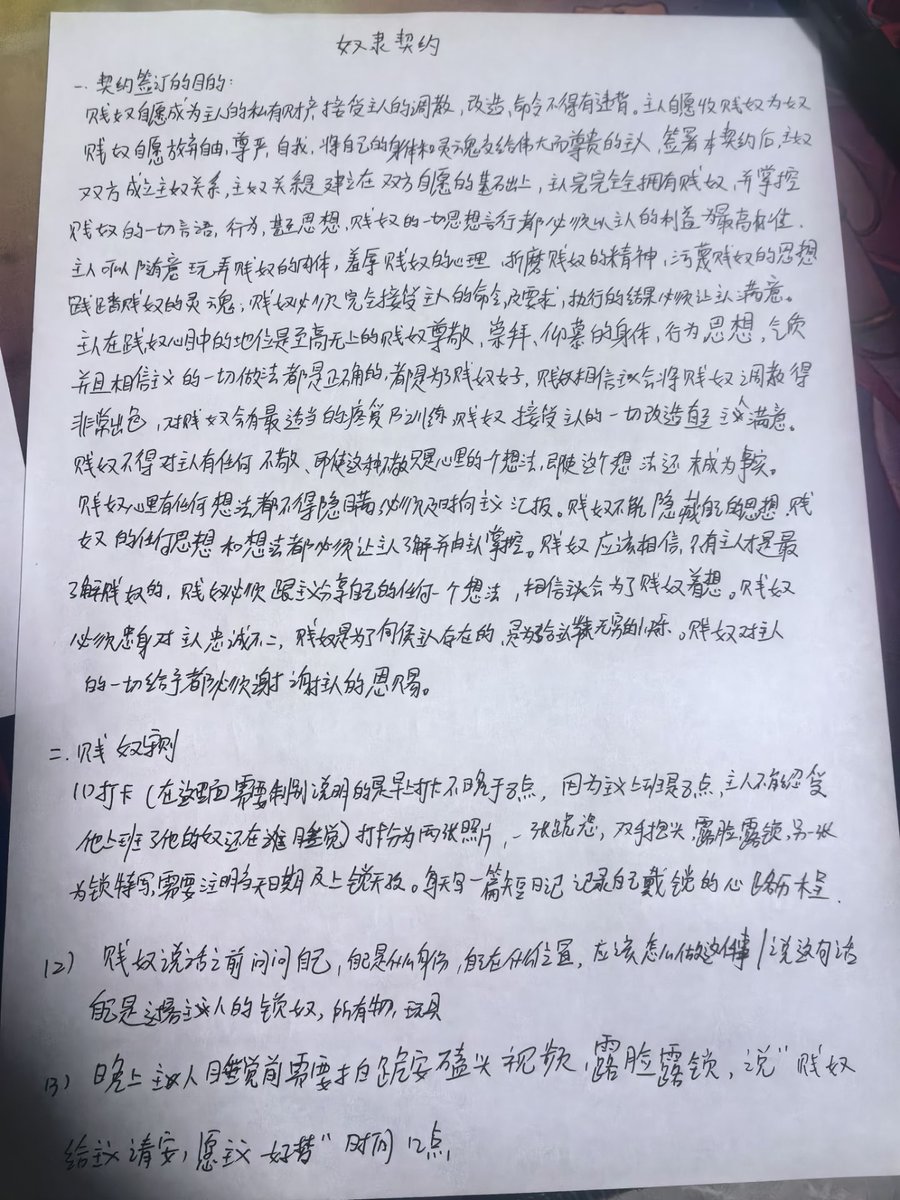 奴隶契约
一.契约签订的目的:
贱奴自愿成为主人的私有财产,接受主人的调散,改造,命令不得有违背。主人自愿收贱奴为奴
贱奴自愿放弃自由,尊严,自我,将自己的身体和灵魂交给伟大而尊贵的主人,签署本契约后,主奴
双方成立主奴关系,主奴关系是建立在双方自愿的基础上,主人完完全全拥有贱奴,并掌控
贱奴的一切言语,行为,甚至思想,贱奴的一切思想言行都必须以主人的利益为最高标准.
主人可以随意玩弄贱奴的肉体,羞辱贱奴的心理,折磨贱奴的精神,污蔑贱奴的思想
践踏贱奴的灵魂;贱奴必须完全接受主人的命令及要求,执行的结果必须让主人满意。
主人在贱奴心目中的地位是至高无上的贱奴尊敬,崇拜、仰慕的身体,行为,思想,气质
并且相信主人的一切做法都是正确的,都是为了贱奴好,贱奴相信主人会将贱奴调教得
非常出色,对贱奴会有最适当的 及训练,贱奴接受主人的一切改造直至主人满意。
贱奴不得对主人有任何不敬、即使这种不敬只是心里的一个想法,即使这个想法还未成为事实。
贱奴心里有任何想法都不得隐瞒,必须及时向主人汇报。贱奴不能隐藏自己的思想,贱
奴的任何思想和想法都必须让主人了解并由主人掌控。贱奴应该相信,只有主人才是最
了解贱奴的,贱奴必须跟主人分享自己的任何一个想法,相信主人会为了贱奴着想。贱奴
必须 对主人忠诚不二,贱奴是为了伺侯主人存在的, 无穷的 乐。贱奴对主人
的一切给予都必须谢谢主人的恩赐。
二.贱奴守则
(1)打卡(在这里面需要特别说明的是早上打卡不晚于8点,因为主人上班是8点,主人不能忍受
他上班了他的奴还在 睡觉)打卡分为两张照片,一张跪姿,双手抱头,露脸露锁,另一张
为锁特写,需要注明当天日期及上锁天数。每天写一篇短日记记录自己戴锁的心路历程.
(2) 贱奴说话之前问问自己,自己是什么身份,自己在什么位置,应该怎么做这件事/说这句话
自己是 主人的锁奴,所有物,玩具
(3) 晚上主人睡觉前需要拍白跪安磕头视频,露脸露锁,说“贱奴
给主人请安,愿主人好梦”时间12点,